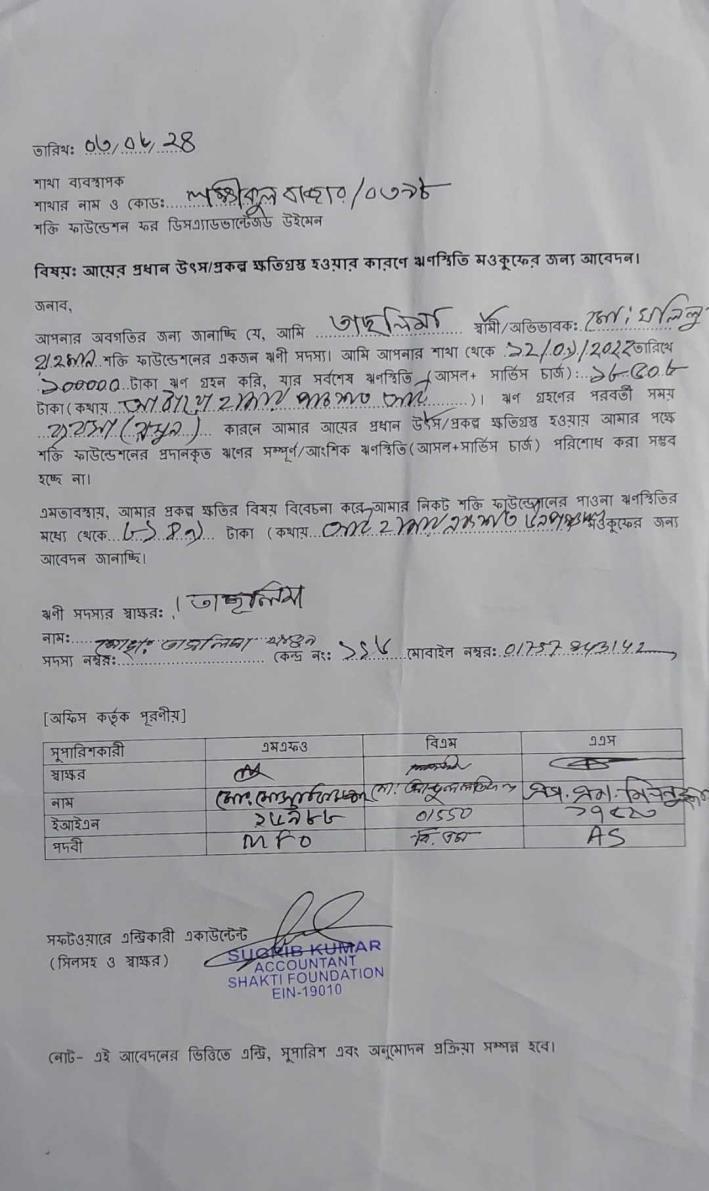 তারিখঃ ০৬/০৮/২৪
শাখা ব্যবস্থাপক
শাখার নাম ও কোডঃ লক্ষীকুল বাজার/০৬৯৮
শক্তি ফাউন্ডেশন ফর ডিসএ্যাডভান্টেজড উইমেন
বিষয়ঃ আয়ের প্রধান উৎস/প্রকল্প ক্ষতিগ্রস্থ হওয়ার কারণে ঋণস্থিতি মওকুফের জন্য আবেদন।
জনাব,
আপনার অবগতির জন্য জানাচ্ছি যে, আমি তাছলিমা স্বামী/অভিভাবকঃ মোঃ
শক্তি ফাউন্ডেশনের একজন ঋনী সদস্য। আমি আপনার শাখা থেকে তারিখে
১০০০০০ টাকা ঋণ গ্রহন করি, যার সর্বশেষ ঋণস্থিতি (আসল+ সার্ভিস চার্জ): ১৮৫০৮
টাকা(কথায় আঠার হাজার পাঁচশত আট)। ঋণ গ্রহণের পরবর্তী সময়
ব্যবসা কারনে আমার আয়ের প্রধান উৎস/প্রকল্প ক্ষতিগ্রস্থ হওয়ায় আমার পক্ষে
শক্তি ফাউন্ডেশনের প্রদানকৃত ঋণের সম্পূর্ণ/আংশিক ঋণস্থিতি(আসল+সার্ভিস চার্জ) পরিশোধ করা সম্ভব
হচ্ছে না।
এমতাবস্থায়, আমার প্রকল্প ক্ষতির বিষয় বিবেচনা করে আমার নিকট শক্তি ফাউন্ডেশনের পাওনা ঋণস্থিতির
মধ্যে থেকে টাকা (কথায় আট হাজার একশত মওকুফের জন্য
আবেদন জানাচ্ছি।
ঋণী সদস্যর স্বাক্ষরঃ তাছলিমা
নামঃ মোছাঃ তাছলিমা খাতুন
সদস্য নম্বরঃ কেন্দ্র নংঃ মোবাইল নম্বরঃ 01757843142
[অফিস কর্তৃক পূরণীয়]
সুপারিশকারী এমএফও বিএম এএস
স্বাক্ষর
নাম
ইআইএন 01550
পদবী MFO বি.এম AS
সফটওয়্যারে এন্ট্রিকারী একাউন্টেন্ট
(সিলসহ ও স্বাক্ষর)
SUGRIB KUMAR
ACCOUNTANT
SHAKTI FOUNDATION
EIN-19010
নোট- এই আবেদনের ভিত্তিতে এন্ট্রি, সুপারিশ এবং অনুমোদন প্রক্রিয়া সম্পন্ন হবে।